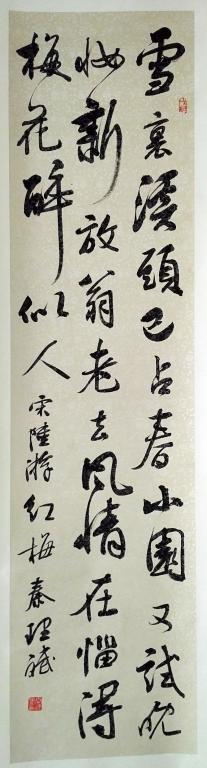 雪裏溪頭已占春小園又試晚
妝新放翁老去風情在惱得
梅花醉似人 宋陸游紅梅 秦理斌